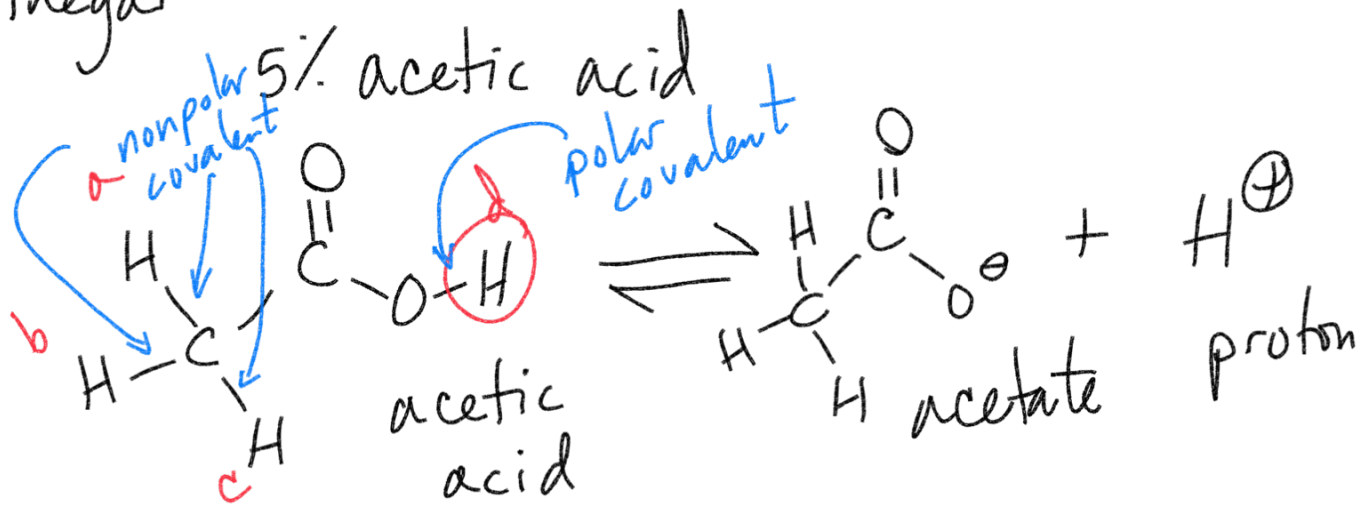 inegar
5% acetic acid
nonpolar
covalent
polar
covalent
a
b
c
d
H
H
C
H
O
C
O
H
acetic
acid
H
H
C
H
O
C
O⊖
acetate
+
H⊕
proton